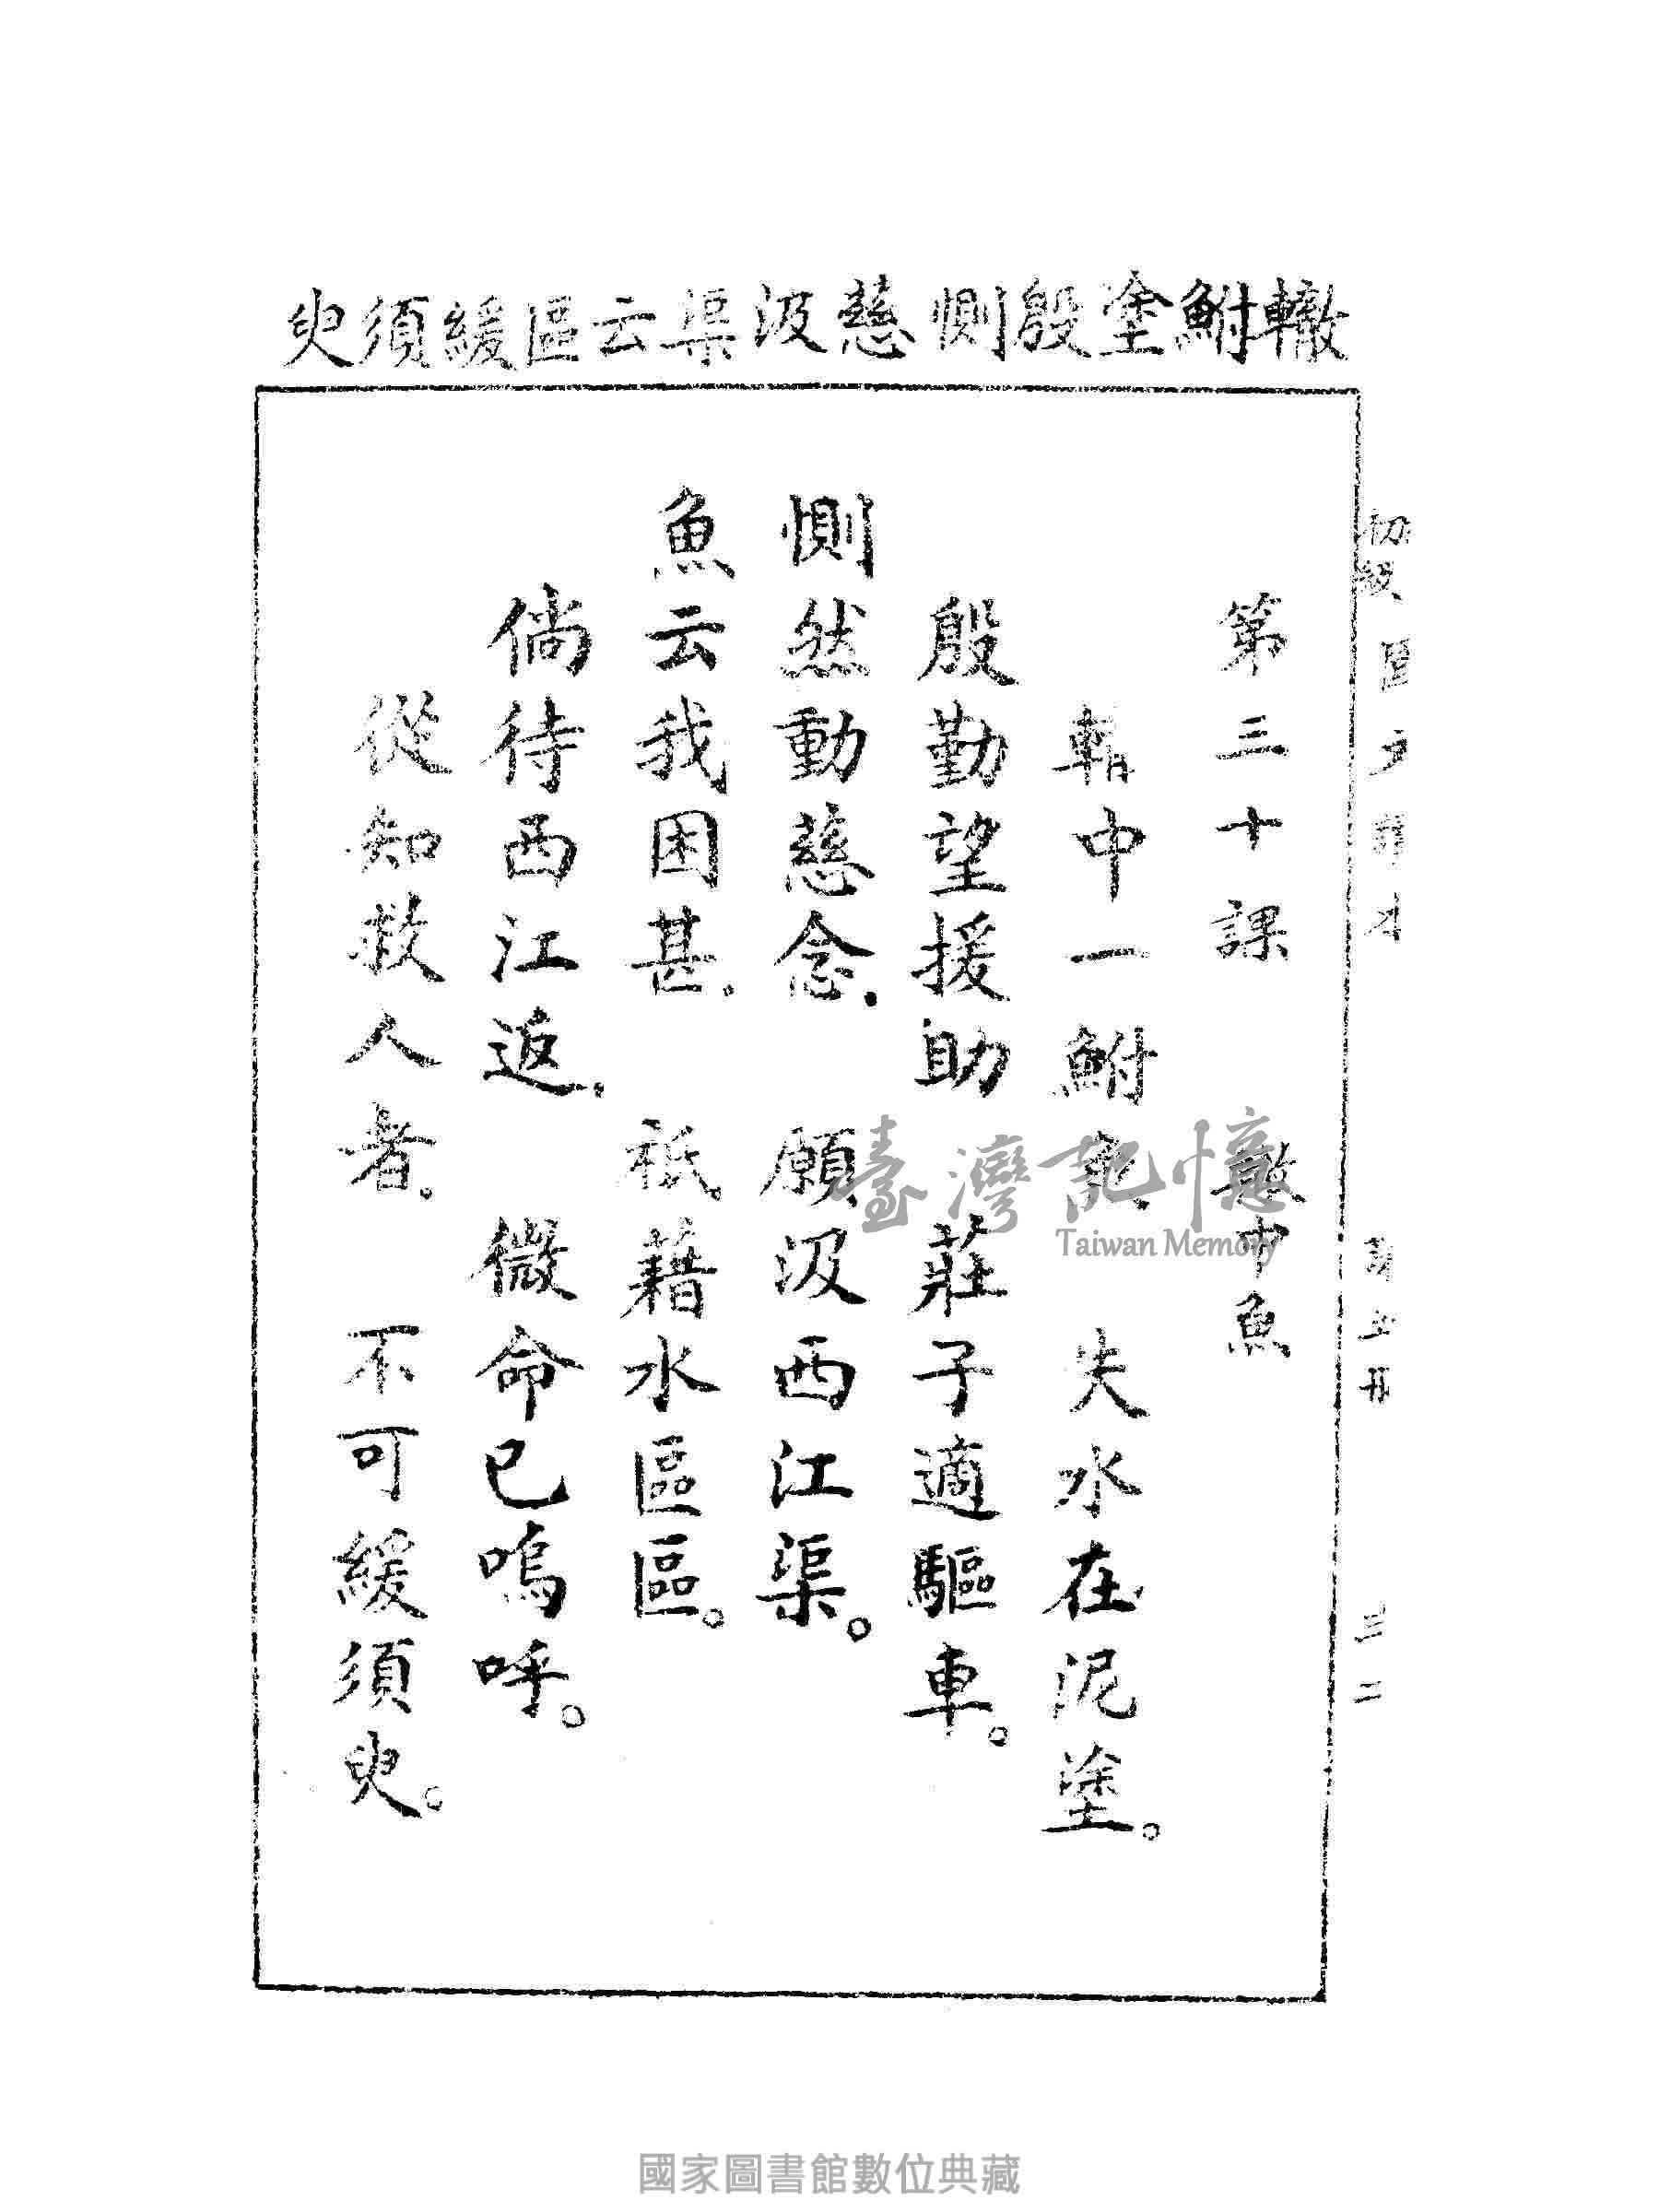 轍鮒塗殷惻慈汲渠云區緩須臾
初級國文讀本
第五冊
三二
第三十課
轍中魚
轍中一鮒魚 失水在泥塗。
殷勤望援助 莊子適驅車。
惻然動慈念. 願汲西江渠。
魚云我困甚. 祇藉水區區。
倘待西江返. 微命已嗚呼。
從知救人者. 不可緩須臾。
臺灣記憶
Taiwan Memory
國家圖書館數位典藏